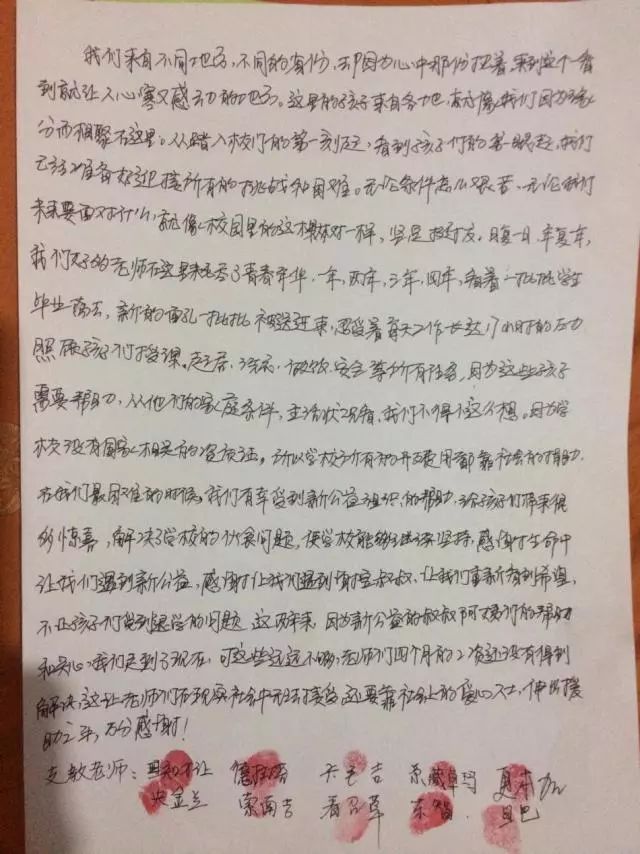 我们来自不同地方,不同的身份,却因为心中那份执着,来到这个看
到就让人心寒又感动的地方。这里的孩子来自各地,就像我们因为缘
分而相聚在这里。从踏入校门的第一刻起,看到孩子们的第一眼起,我们
已经准备好迎接所有的挑战和困难。无论条件怎么艰苦,无论我们
未来要面对什么,就像校园里的这棵树一样,坚定挺拔。日复一日,年复一年,
我们好的老师在这里耗尽了青春年华,一年,两年,三年,四年,看着一批批学生
毕业离去,新的面孔一批批被送进来,忍受着每天工作长达17小时的压力
照顾孩子们授课、起居、洗衣、做饭、安全等所有任务,因为这些孩子
需要帮助,从他们的家庭条件,生活状况看,我们不得不这么想。因为学
校没有国家相关的资质证,所以学校所有的开支费用都靠社会的捐助.
在我们最困难的时候,我们有幸受到新公益组织的帮助,给孩子们带来很
多惊喜,解决了学校的伙食问题,使学校能够继续坚持,感谢生命中
让我们遇到新公益,感谢让我们遇到谢宝叔叔,让我们重新看到希望,
不让孩子们受到退学的问题 这两年来,因为新公益的叔叔阿姨们的帮助
和关心,我们走到了现在,可这些远远不够,老师们四个月的工资还没有得到
解决,这让老师们在现实社会中无法接受,还要靠社会上的爱心人士,伸出援
助之手,万分感谢!
支教老师: 旦知才让 德吉 卡毛吉 索藏卓玛 夏本加
央金兰 索南吉 看召草 东智 旦巴